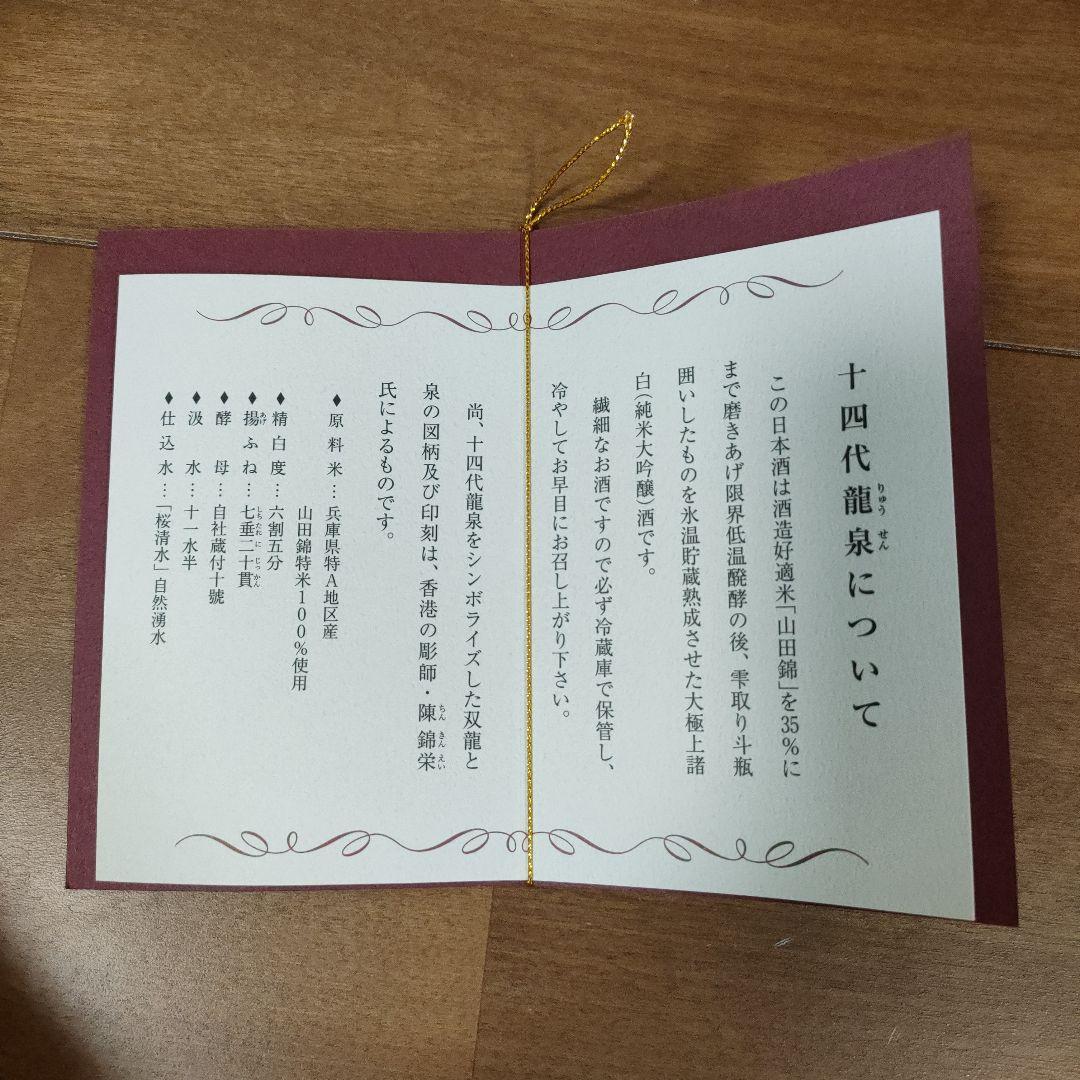 十四代龍泉について
りゅう せん
この日本酒は酒造好適米「山田錦」を35%に
まで磨きあげ限界低温醗酵の後、雫取り斗瓶
囲いしたものを氷温貯蔵熟成させた大極上諸
白(純米大吟醸)酒です。
繊細なお酒ですので必ず冷蔵庫で保管し、
冷やしてお早目にお召し上がり下さい。
尚、十四代龍泉をシンボライズした双龍と
泉の図柄及び印刻は、香港の彫師・陳錦栄
ちん きん えい
氏によるものです。
♦原料米…兵庫県特A地区産
山田錦特米100%使用
♦精白度…六割五分
♦揚ふね…七垂二十貫
あげ しちたれ に じっかん
♦酵母…自社蔵付十號
♦汲水…十一水半
♦仕込水…「桜清水」自然湧水